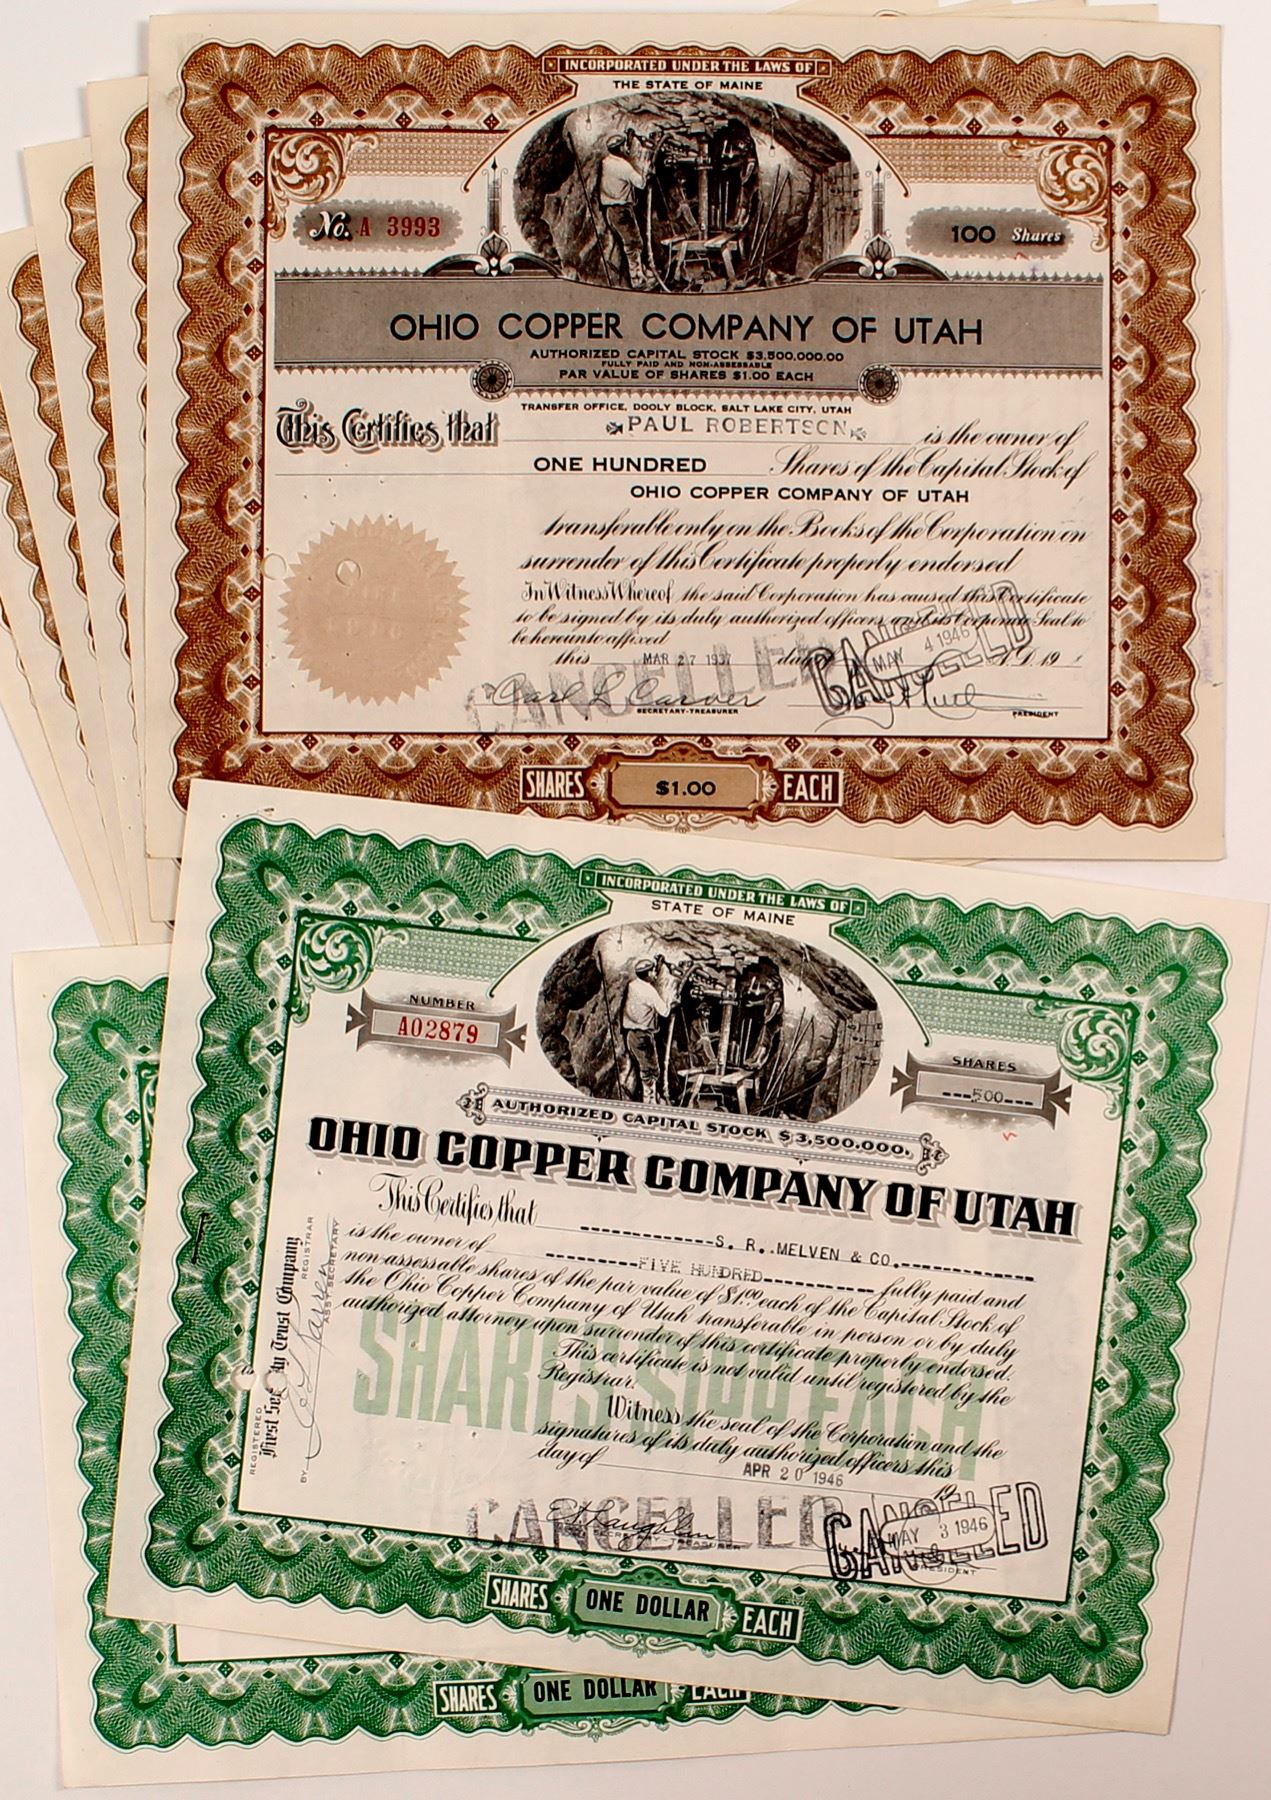 INCORPORATED UNDER THE LAWS OF
THE STATE OF MAINE
No. A 3993
100 Shares
OHIO COPPER COMPANY OF UTAH
AUTHORIZED CAPITAL STOCK $3,500,000.00
FULLY PAID AND NON-ASSESSABLE
PAR VALUE OF SHARES $1.00 EACH
TRANSFER OFFICE, DOOLY BLOCK, SALT LAKE CITY, UTAH
This Certifies that PAUL ROBERTSON is the owner of
ONE HUNDRED Shares of the Capital Stock of
OHIO COPPER COMPANY OF UTAH
transferable only on the Books of the Corporation on
surrender of this Certificate properly endorsed
In Witness Whereof, the said Corporation has caused this Certificate
to be signed by its duly authorized officers and its Corporate Seal to
be hereunto affixed
this MAR 27 1937 day A.D. 19
CANCELLED
CANCELLED
MAY 4 1946
Carl L Carver
SECRETARY-TREASURER
PRESIDENT
SHARES $1.00 EACH
INCORPORATED UNDER THE LAWS OF
STATE OF MAINE
NUMBER
A02879
SHARES
---500---
AUTHORIZED CAPITAL STOCK $3,500,000.
OHIO COPPER COMPANY OF UTAH
This Certifies that S. R. MELVEN & CO.
is the owner of FIVE HUNDRED fully paid and
non-assessable shares of the par value of $1.00 each of the Capital Stock of
the Ohio Copper Company of Utah transferable in person or by duly
authorized attorney upon surrender of this certificate properly endorsed.
This certificate is not valid until registered by the
Registrar.
Witness the seal of the Corporation and the
signatures of its duly authorized officers this
day of APR 20 1946 19
SHARES $1.00 EACH
REGISTERED
First Security Trust Company
REGISTRAR
BY
ASS'T SECRETARY
CANCELLED
CANCELLED
MAY 3 1946
TREASURER
PRESIDENT
SHARES ONE DOLLAR EACH
SHARES ONE DOLLAR EACH